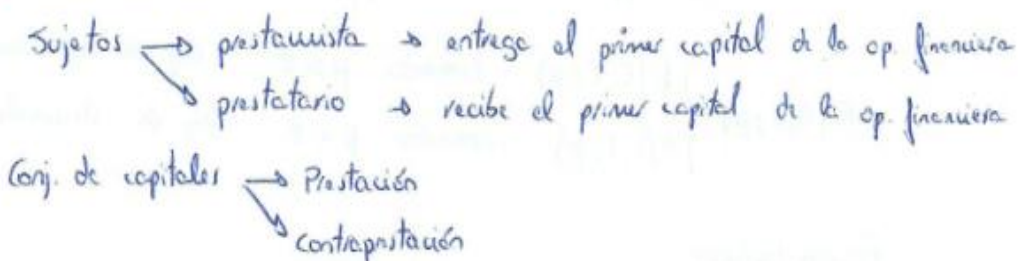 Sujetos → prestamista → entrega el primer capital de la op. financiera
→ prestatario → recibe el primer capital de la op. financiera
Conj. de capitales → Prestación
→ contraprestación